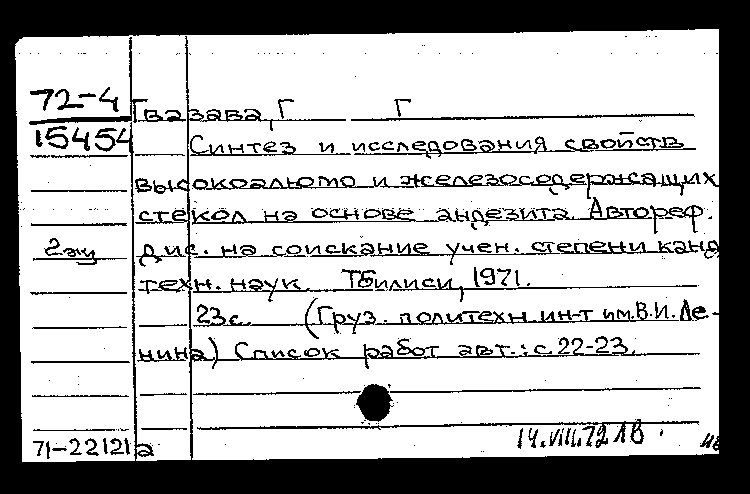 72-4 Гвазава, Г Г
15454 Синтез и исследования свойств
высокоалюмо и железосодержащих
стекол на основе андезита. Автореф.
2 экз дис. на соискание учен. степени канд
техн. наук. Тбилиси, 1971.
23с. (Груз. политехн. ин-т им. В.И. Ле-
нина) Список работ авт.: с. 22-23.
71-22121а 14.VIII.72